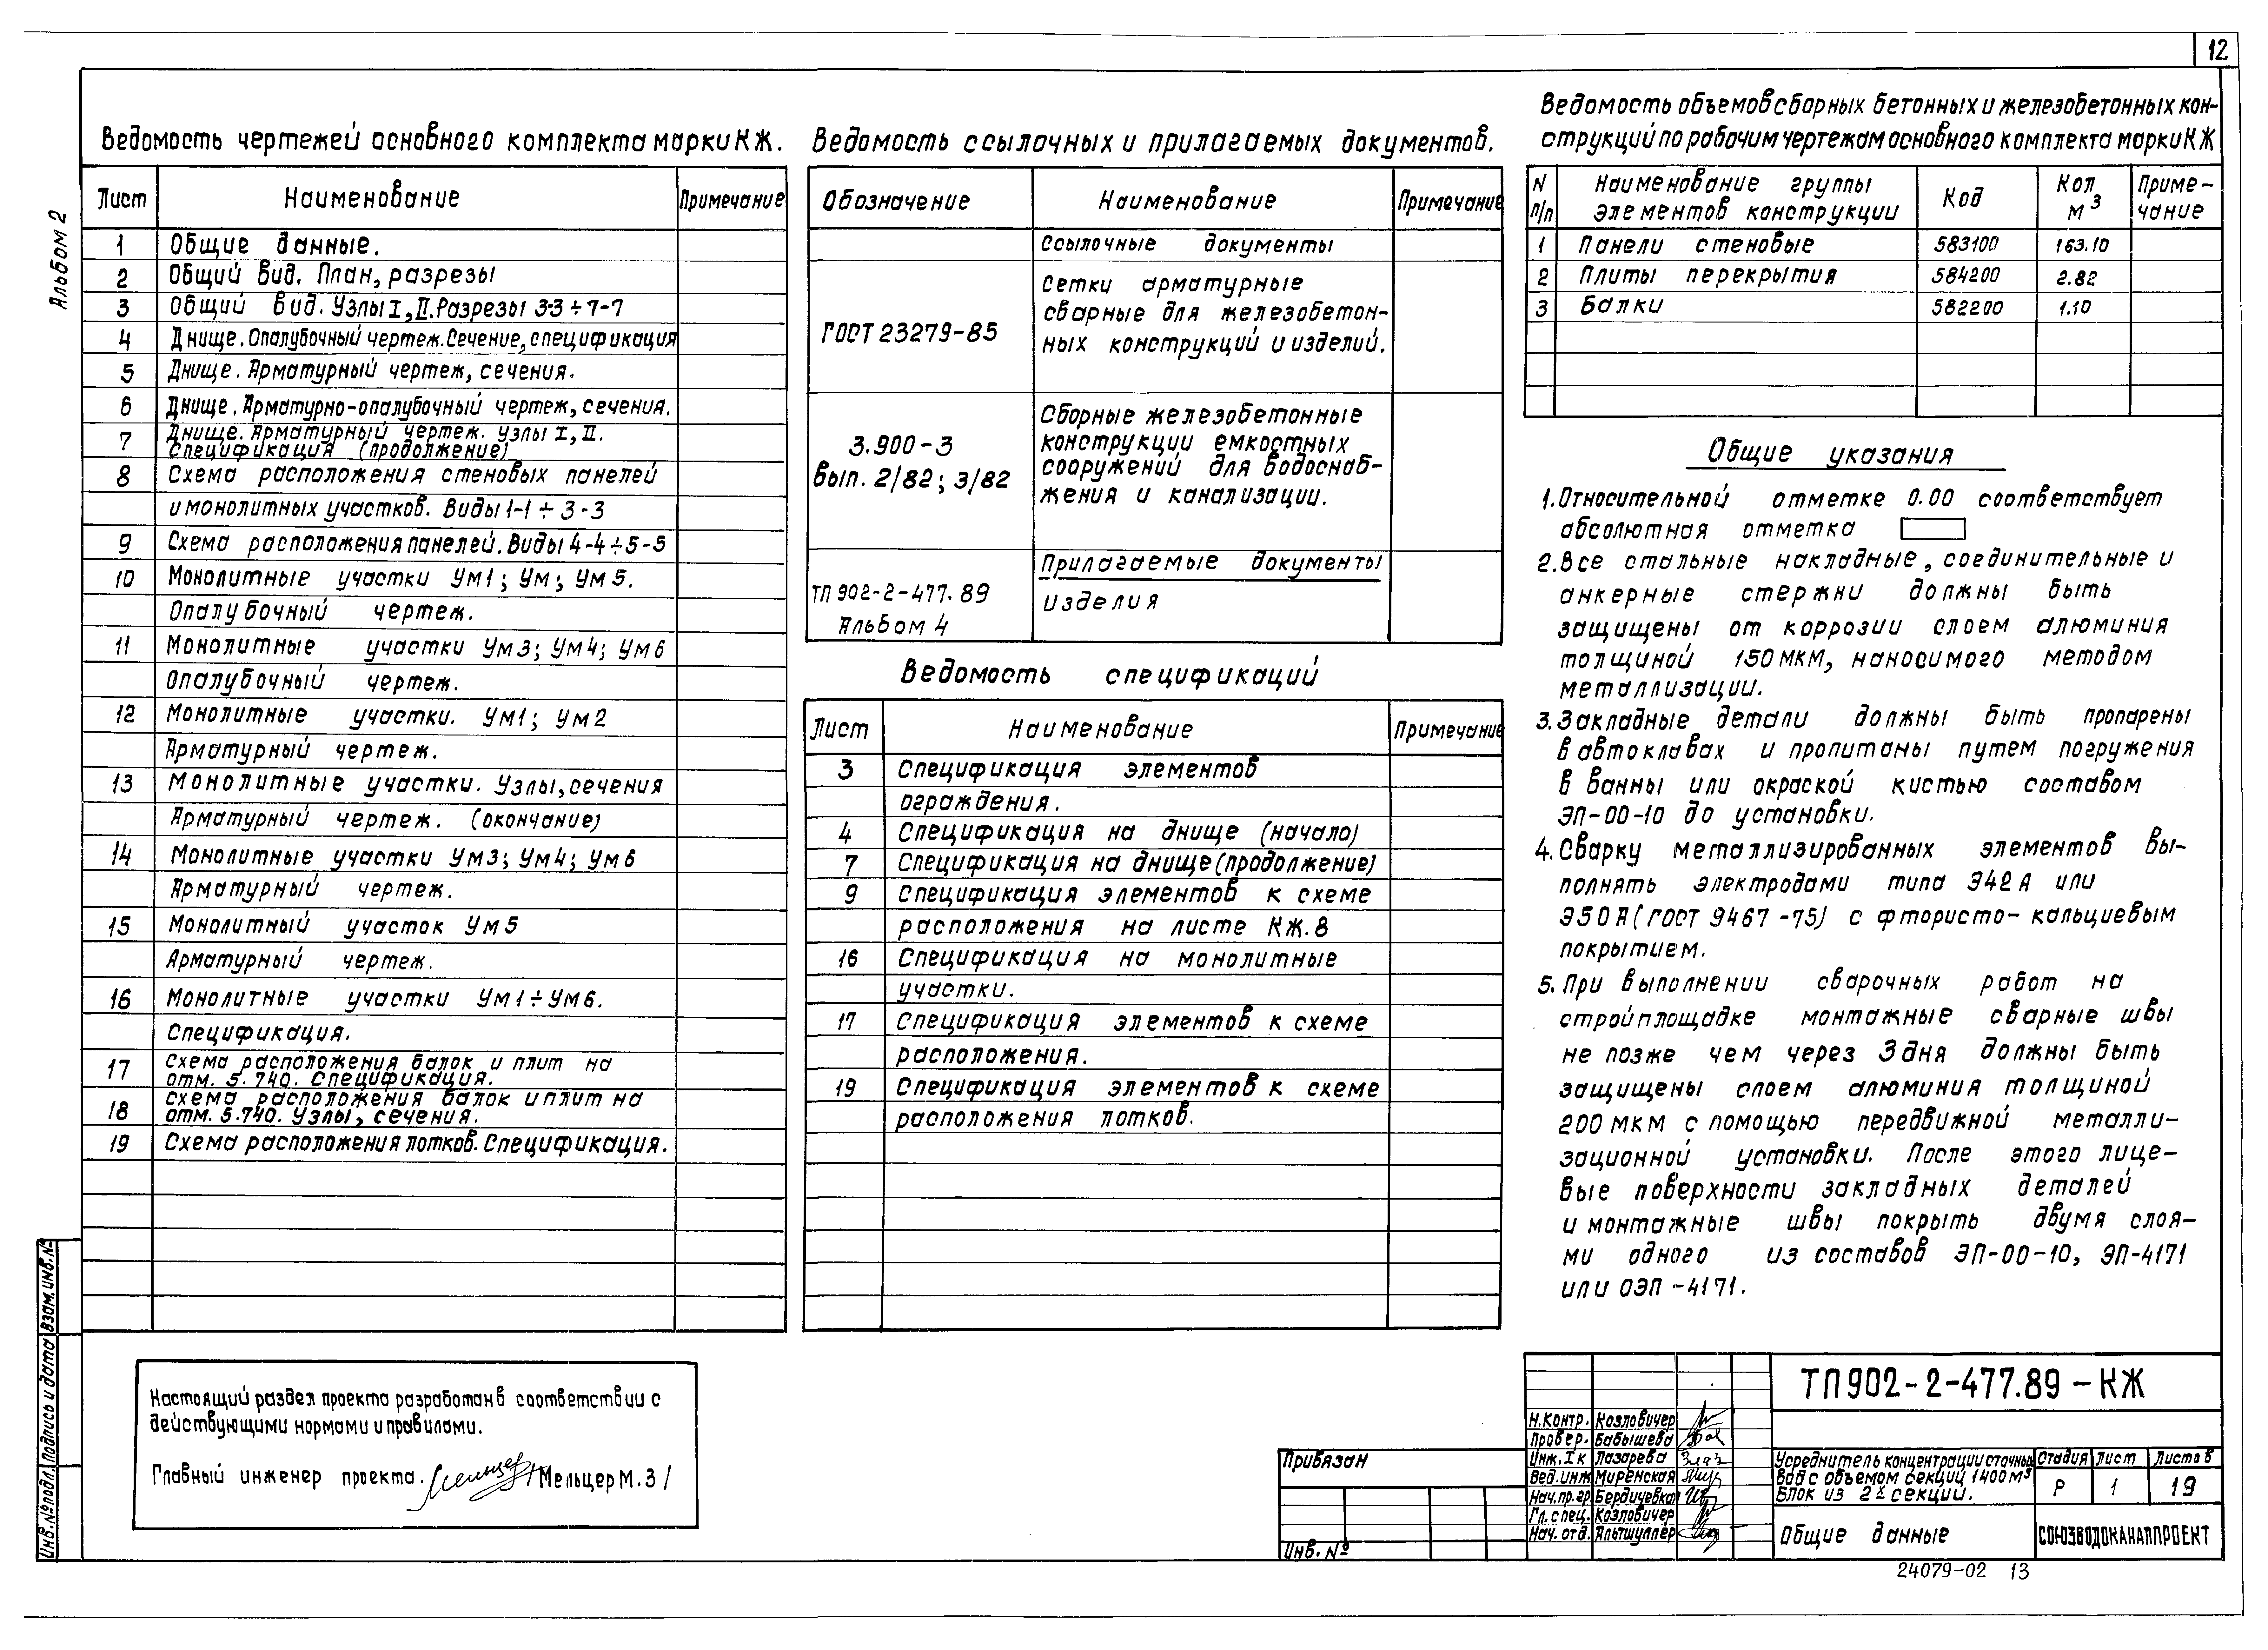 12
Альбом 2
Ведомость чертежей основного комплекта марки КЖ.
Лист Наименование Примечание
1 Общие данные.
2 Общий вид. План, разрезы
3 Общий вид. Узлы I, II. Разрезы 3-3÷7-7
4 Днище. Опалубочный чертеж. Сечение, спецификация
5 Днище. Арматурный чертеж, сечения.
6 Днище. Арматурно-опалубочный чертеж, сечения.
7 Днище. Арматурный чертеж. Узлы I, II.
Спецификация (продолжение)
8 Схема расположения стеновых панелей
и монолитных участков. Виды 1-1÷3-3
9 Схема расположения панелей. Виды 4-4÷5-5
10 Монолитные участки Ум1; Ум; Ум5.
Опалубочный чертеж.
11 Монолитные участки Ум3; Ум4; Ум6
Опалубочный чертеж.
12 Монолитные участки. Ум1; Ум2
Арматурный чертеж.
13 Монолитные участки. Узлы, сечения
Арматурный чертеж. (окончание)
14 Монолитные участки Ум3; Ум4; Ум6
Арматурный чертеж.
15 Монолитный участок Ум5
Арматурный чертеж.
16 Монолитные участки Ум1÷Ум6.
Спецификация.
17 Схема расположения балок и плит на
отм. 5.740. Спецификация.
18 Схема расположения балок и плит на
отм. 5.740. Узлы, сечения.
19 Схема расположения лотков. Спецификация.
Ведомость ссылочных и прилагаемых документов.
Обозначение Наименование Примечание
Ссылочные документы
ГОСТ 23279-85
Сетки арматурные
сварные для железобетон-
ных конструкций и изделий.
3.900-3
Вып. 2/82; 3/82
Сборные железобетонные
конструкции емкостных
сооружений для водоснаб-
жения и канализации.
Прилагаемые документы
ТП 902-2-477.89
Альбом 4
Изделия
Ведомость спецификаций
Лист Наименование Примечание
3 Спецификация элементов
ограждения.
4 Спецификация на днище (начало)
7 Спецификация на днище (продолжение)
9 Спецификация элементов к схеме
расположения на листе КЖ.8
16 Спецификация на монолитные
участки.
17 Спецификация элементов к схеме
расположения.
19 Спецификация элементов к схеме
расположения лотков.
Ведомость объемов сборных бетонных и железобетонных кон-
струкций по рабочим чертежам основного комплекта марки КЖ
N п/п Наименование группы элементов конструкции Код Кол м3 Приме-чание
1 Панели стеновые 583100 163.10
2 Плиты перекрытия 584200 2.82
3 Балки 582200 1.10
Общие указания
1. Относительной отметке 0.00 соответствует
абсолютная отметка
2. Все стальные накладные, соединительные и
анкерные стержни должны быть
защищены от коррозии слоем алюминия
толщиной 150 мкм, наносимого методом
металлизации.
3. Закладные детали должны быть пропарены
в автоклавах и пропитаны путем погружения
в ванны или окраской кистью составом
ЭП-00-10 до установки.
4. Сварку металлизированных элементов вы-
полнять электродами типа Э42А или
Э50А (ГОСТ 9467-75) с фтористо-кальциевым
покрытием.
5. При выполнении сварочных работ на
стройплощадке монтажные сварные швы
не позже чем через 3 дня должны быть
защищены слоем алюминия толщиной
200 мкм с помощью передвижной металли-
зационной установки. После этого лице-
вые поверхности закладных деталей
и монтажные швы покрыть двумя слоя-
ми одного из составов ЭП-00-10, ЭП-4171
или ОЭП-4171.
Настоящий раздел проекта разработан в соответствии с
действующими нормами и правилами.
Главный инженер проекта. Мельцер М.З/
Взам. инв. №
Подпись и дата
Инв. № подл.
Привязан
Инв. №
Н. контр. Козловичер
Провер. Бабышева
Инж. I к Лазарева
Вед. инж Миренская
Нач. пр. гр Бердичевкая
Гл. спец. Козловичер
Нач. отд. Альтшуллер
ТП 902-2-477.89-КЖ
Усреднитель концентрации сточных
вод с объемом секций 1400 м3
Блок из 2х секций.
Стадия Лист Листов
Р 1 19
Общие данные
СОЮЗВОДОКАНАЛПРОЕКТ
24079-02 13